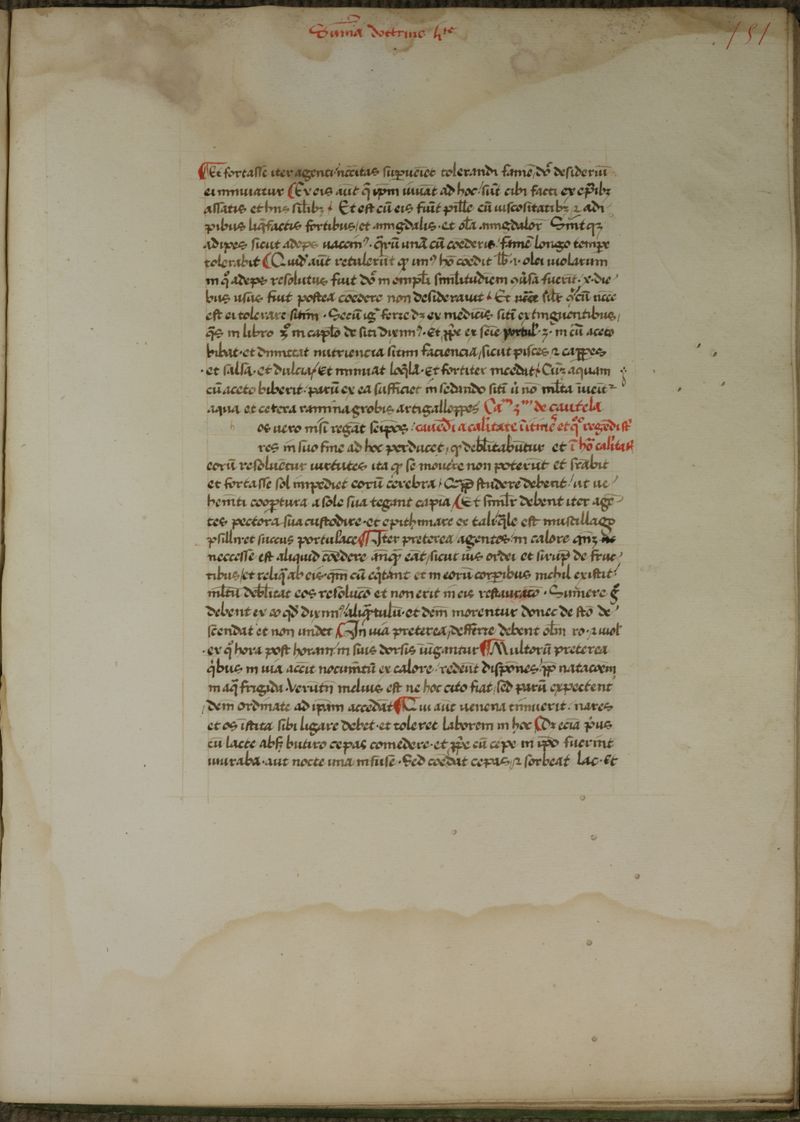 Sum̄a doctrine h̄ic
151
¶Et fortasse iter agenti neccitas supueniet tolerandi famē desideriū
ei minuatur Ex eis aūt q̄ ip̄m iuuāt ad hoc sūt cibi facti ex epatibꝫ
assatis et hiis silibꝫ Et est cū eis fiūt pille cū uiscositatibꝫ ⁊ adi
pibus liq̄factis fortibus et amigdalis et olō amigdalor Sintqꝫ
adipes sicut adeps uaccin̄ qrū unā cū coederis famē longo tempe
tolerabit Quidā aūt retulerūt qp un̄ hō coedit lb ·1· olei uiolarum
in q̄ adeps resolutus fuit similitudiem fuerit ·x· die
bus usus fuit postea coedere non desiderauit Et necce
est ei tolerare sitim Secū iḡ ferre dꝫ ex medicis sitī extinguentibus
q̄s in libro in caplo de siti dixim⁹ Et ex seīe portul in cū aceto
bibat et dimittat nutriencia sitim faciencia sicut pisces ⁊ cappes
et salsa et dulcia Et minuat loq̄la Et fortiter incedat Cūqꝫ aquam
cū aceto biberit parū ex ea sufficiet in sedando sitī ū nō mlta
aqua et cetera ramina grobis artigallopes Cam de cautela
os uero in si regāt seipos cauēdi a calitate
res in suo fine ad hoc perducet qp debilitabuntur et
eorū resoluentur uirtutes ita qp se mouere non poterut et
et fortasse sol impediet eorū cerebra studere debent ut ue
hemēti cooptura a sole sua tegant capia Et similr debent iter age
tes pectora sua custodire et epithimare ex talibꝫ est muscillago
psillii et succus portulace ¶Iter preterea agentes in calore
neccesse est aliquid coedere anq̄ eāt sicut iūs ordei et sirup de fruc
tibus et reliq̄ ab eis qm̄ cū et in eorū corpibus nichil existit
mltū debilitat eos resoluco et non erit in eis restauraco Sumere
debent ex eo qd dixim⁹ aliq̄tulū et dem morentur donec de sto de
scendat et non undet In uia preterea defferre debent olm ro ⁊ uiol
ex q̄ hora post horam in suis dorsis ungantur ¶Multorū preterea
q̄bus in uia accit nocumtū ex calore redēnt dispones natacoem
in aq̄ frigida Verūtn melius est ne hoc cito fiat sed parū expectent
dem ordinate ad ipam accedāt ¶Cui aūt uenena timuerit nares
et os istita sibi ligare debet et toleret laborem in hoc Dꝫ ecia pus
cū lacte absꝫ butiro cepas comedere et cū cepe in ipo fuerint
uuraba aut nocte una infuse Sed coedat cepas ⁊ sorbeat lac Et